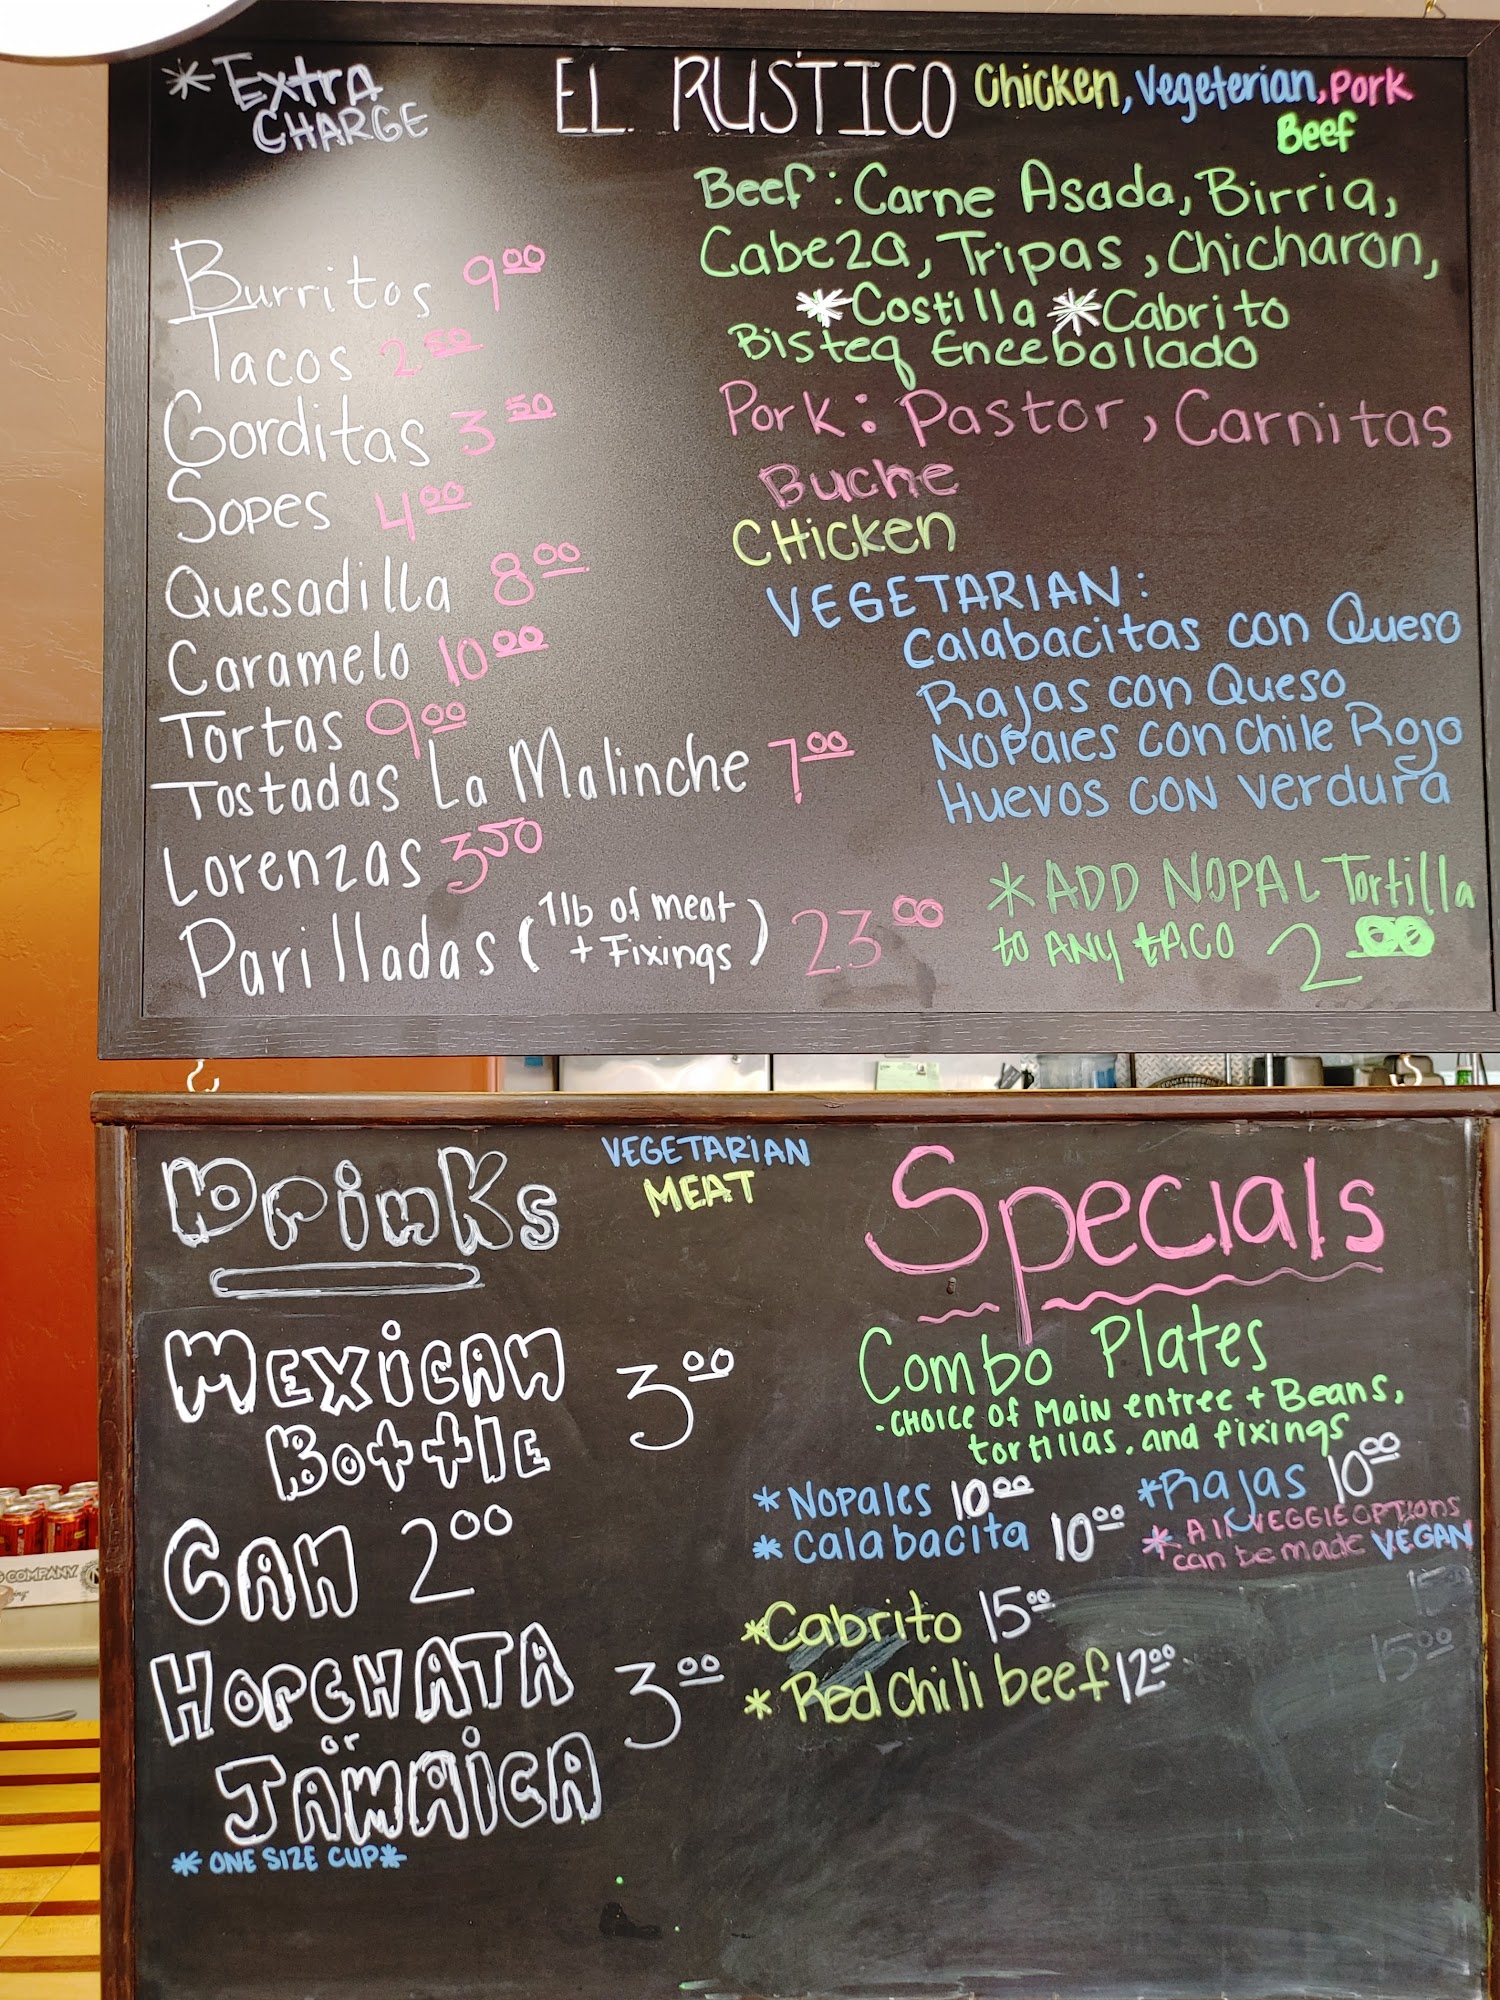 *Extra
CHARGE
EL RUSTICO
Chicken, Vegeterian, Pork
Beef
Burritos 9.00
Tacos 2.50
Gorditas 3.50
Sopes 4.00
Quesadilla 8.00
Caramelo 10.00
Tortas 9.00
Tostadas La Malinche 7.00
Lorenzas 3.50
Parilladas (1lb of meat + Fixings) 23.00
Beef: Carne Asada, Birria,
Cabeza, Tripas, Chicharon,
*Costilla *Cabrito
Bisteq Encebollado
Pork: Pastor, Carnitas
Buche
CHicken
VEGETARIAN:
Calabacitas con Queso
Rajas con Queso
Nopales con Chile Rojo
Huevos con verdura
*ADD NOPAL Tortilla
to ANY tACO 2.00
Drinks
Mexican
Bottle 3.00
Can 2.00
Horchata
or 3.00
Jamaica
* ONE SIZE CUP*
VEGETARIAN
MEAT
Specials
Combo Plates
. CHOICE of Main entree + Beans,
tortillas, and fixings
*Nopales 10.00 *Rajas 10.00
*Calabacita 10.00
* All VEGGIE OPTIONS
can be made VEGAN
*Cabrito 15.00
* Red Chili beef 12.00
15.00